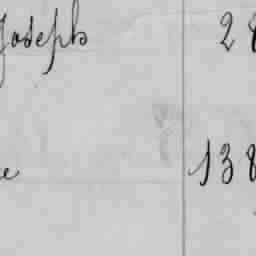 Joseph 28
e 138